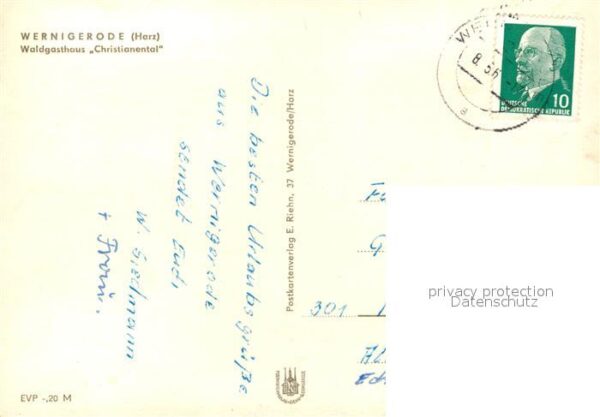 WERNIGERODE (Harz)
Waldgasthaus „Christianental"
Die besten Urlaubsgrüße
aus Wernigerode
sendet Euch
W.
+ Frau.
Postkartenverlag E. Riehn, 37 Wernigerode/Harz
10
DEUTSCHE
DEMOKRATISCHE REPUBLIK
301
privacy protection
Datenschutz
EVP -,20 M